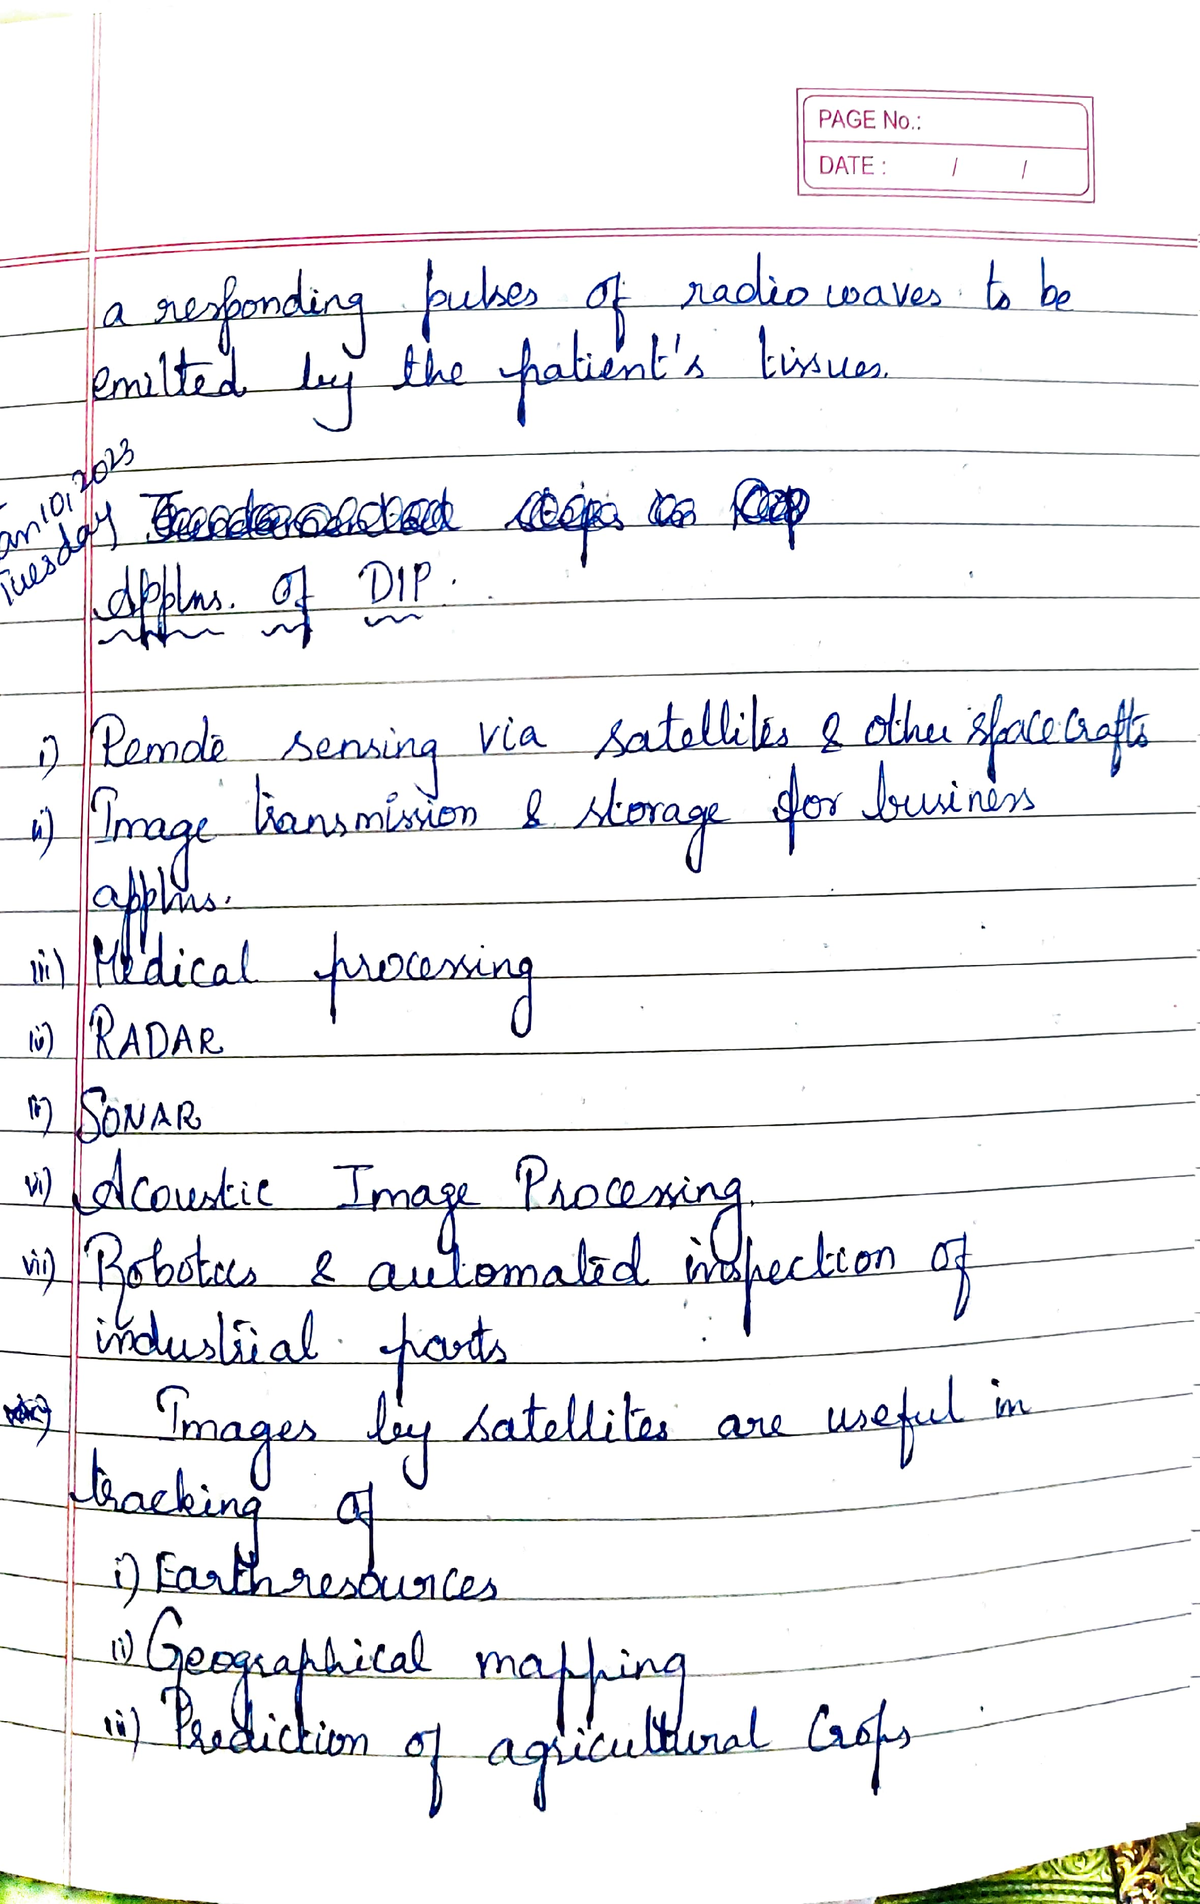 PAGE No.:
DATE : / /
a responding pulses of radio waves to be
emitted by the patient's tissues.
Jan 10, 2023
Tuesday
Applns. of DIP.
i) Remote sensing via satellites & other spacecrafts
ii) Image transmission & storage for business
applns.
iii) Medical processing
iv) RADAR
v) SONAR
vi) Acoustic Image Processing.
vii) Robotics & automated inspection of
industrial parts
Images by satellites are useful in
tracking of
i) Earth resources
ii) Geographical mapping
iii) Prediction of agricultural Crops